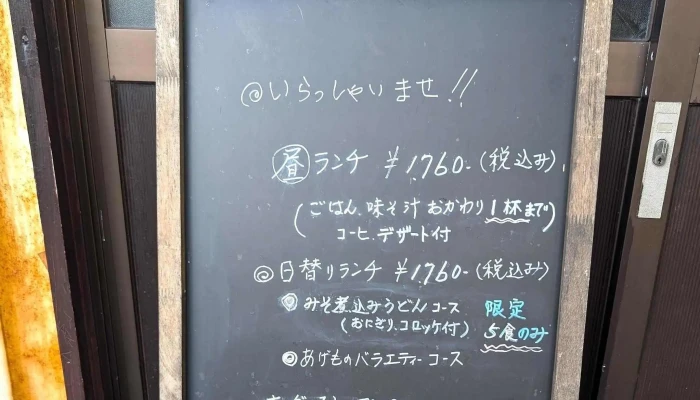 ◎いらっしゃいませ!!
昼ランチ ¥1760-(税込み)
(ごはん、味そ汁 おかわり1杯まで)
コーヒ、デザート付
◎日替りランチ ¥1760-(税込み)
◎みそ煮込みうどんコース 限定
(おにぎり、コロッケ付) 5食のみ
◎あげものバラエティーコース